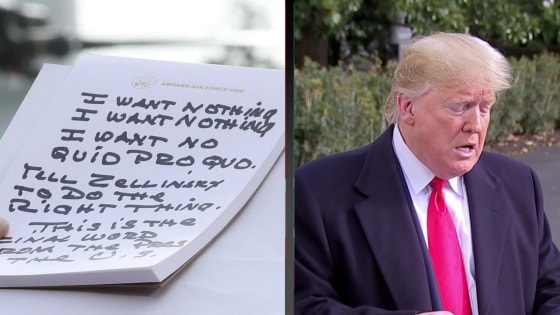 ABOARD AIR FORCE ONE
I WANT NOTHING
I WANT NOTHING
I WANT NO
QUID PRO QUO.
TELL ZELLINSKY
TO DO THE
RIGHT THING.
THIS IS THE
FINAL WORD
FROM THE PRES
OF THE U.S.